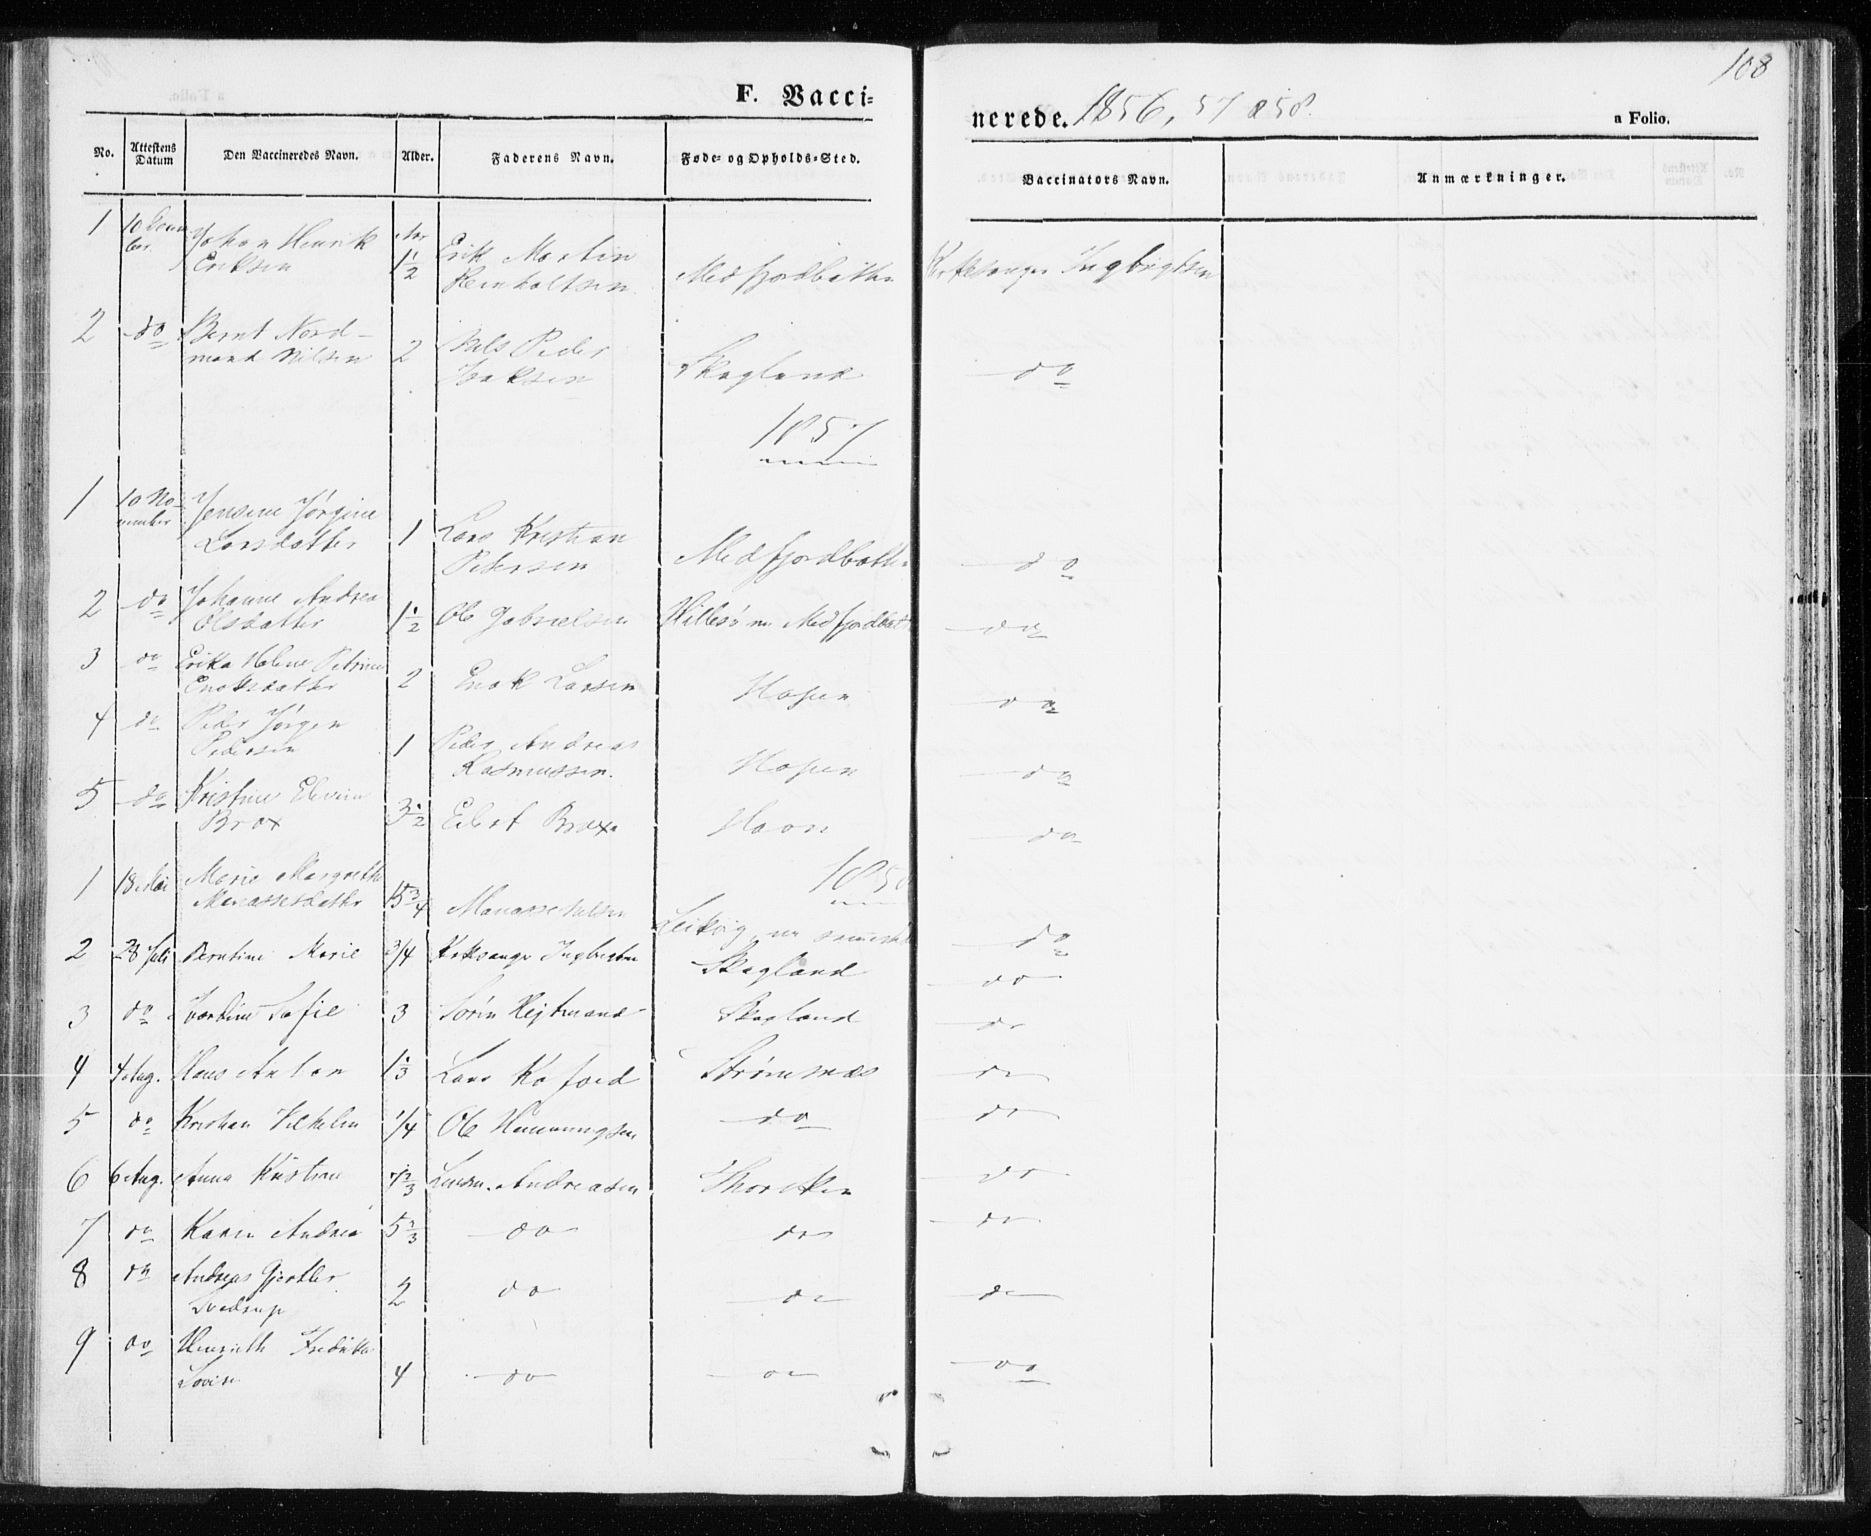 108
F. Vacci-
nerede. 1856, 57 & 58.
a Folio.
No. Attestens Datum Den Vaccineredes Navn. Alder. Faderens Navn. Føde- og Opholds-Sted. Vaccinators Navn. Anmærkninger.
1 Johan Henrik Aar Erik Martin
Eriksen 1½ Reinholtsen Medfjordbotten Ingbrigtsen
2 do Bernt Nord- Nils Peder
mand Nilsen 2 Isaksen Skagland do
1857
1 10 No- Jensine Jørgine Lars Kristian
vember Larsdatter 1 Pedersen Medfjordbotten do
2 do Johanne Andrea
Olsdatter 1½ Ole Gabrielsen Hillesø nu Medfjordbott do
3 do Erika Helene Petrine
Enoksdatter 2 Enok Larsen Hopen do
4 do Peder Jørgen Peder Andreas
Pedersen 1 Rasmussen. Hopen do
5 do Kristine
Brox 3½ Edert Brox Havn do
1858
1 18 Mai Marie Margrethe
Manassesdatter Manasse Nilsen Leikvig nu do
2 28 Juli Berntine Marie 3/4 Kirksanger Ingbrigtsen Skagland do
3 do Sofie 3 Sørin Hejtmand Skagland do
4 4 Aug. Hans Anton 1⅓ Lars Kofoed Strømsnæs do
5 do Kristian Vilhelm 1/4 Ole Hemmingsen do do
6 6 Aug. Anna Kristine 7⅔ Andreasen do
7 do Karen Andrea 5⅔ do do do
8 do Andreas Gjertler
Svedrup 2 do do do
9 do Henrieth Fredrikke
Lovise 4 do do do